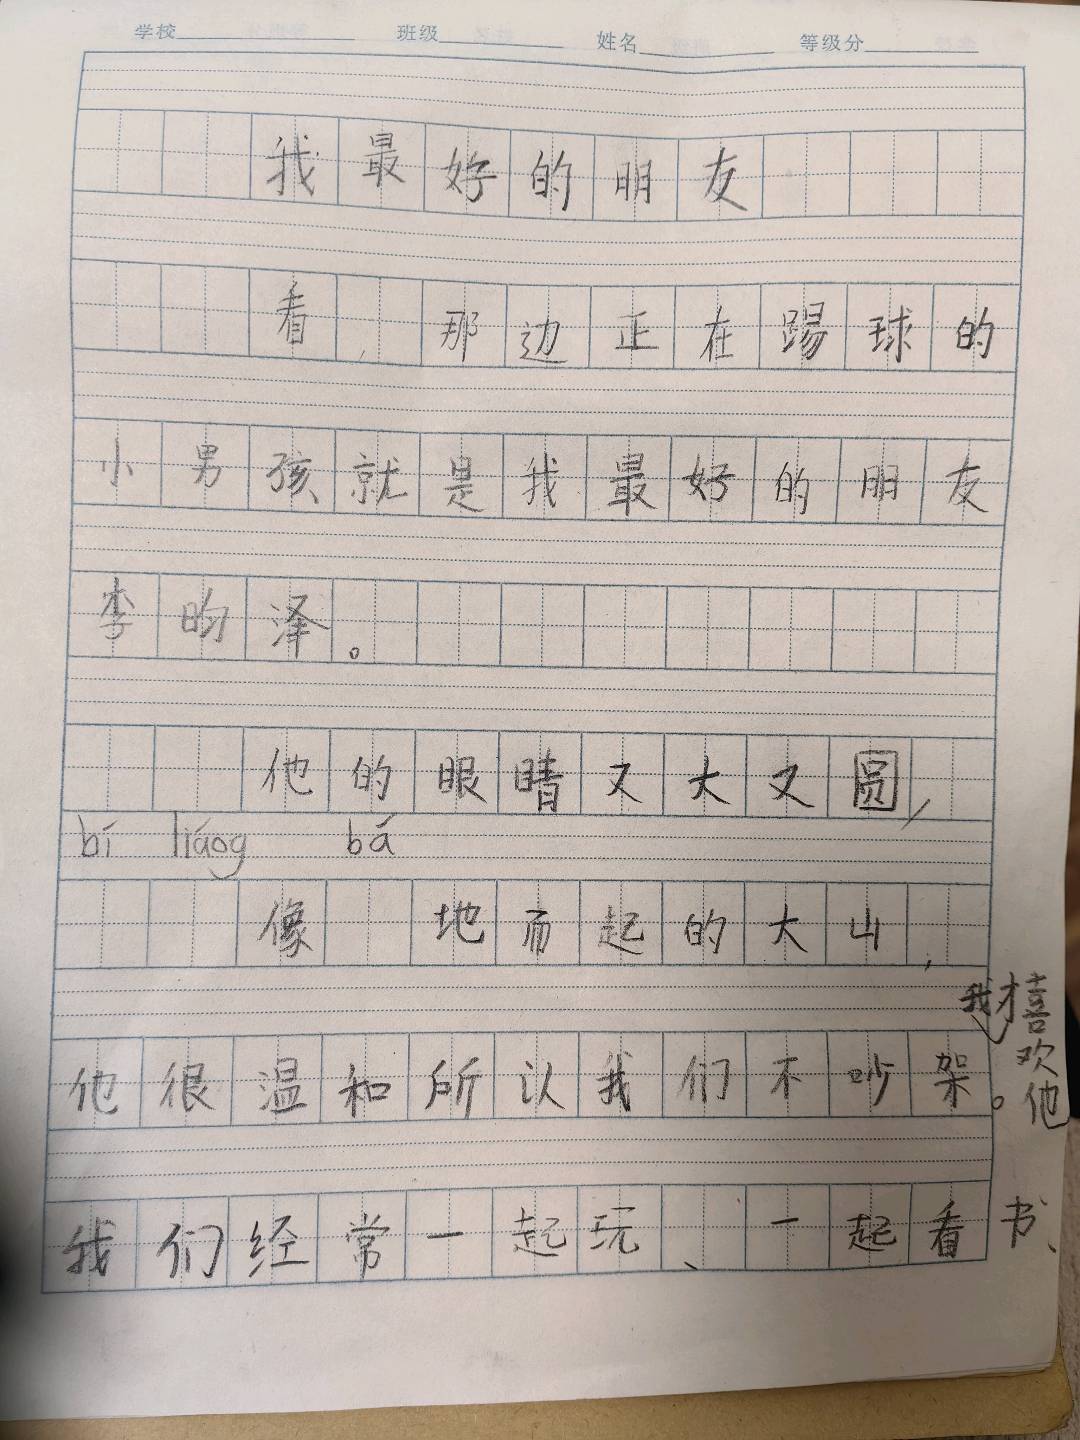 学校 班级 姓名 等级分
我最好的朋友
看,那边正在踢球的
小男孩就是我最好的朋友
李昀泽。
他的眼睛又大又圆,
bí liáog bá
像 地而起的大山,
我才喜欢他
他很温和所认我们不吵架。
我们经常一起玩、一起看书、